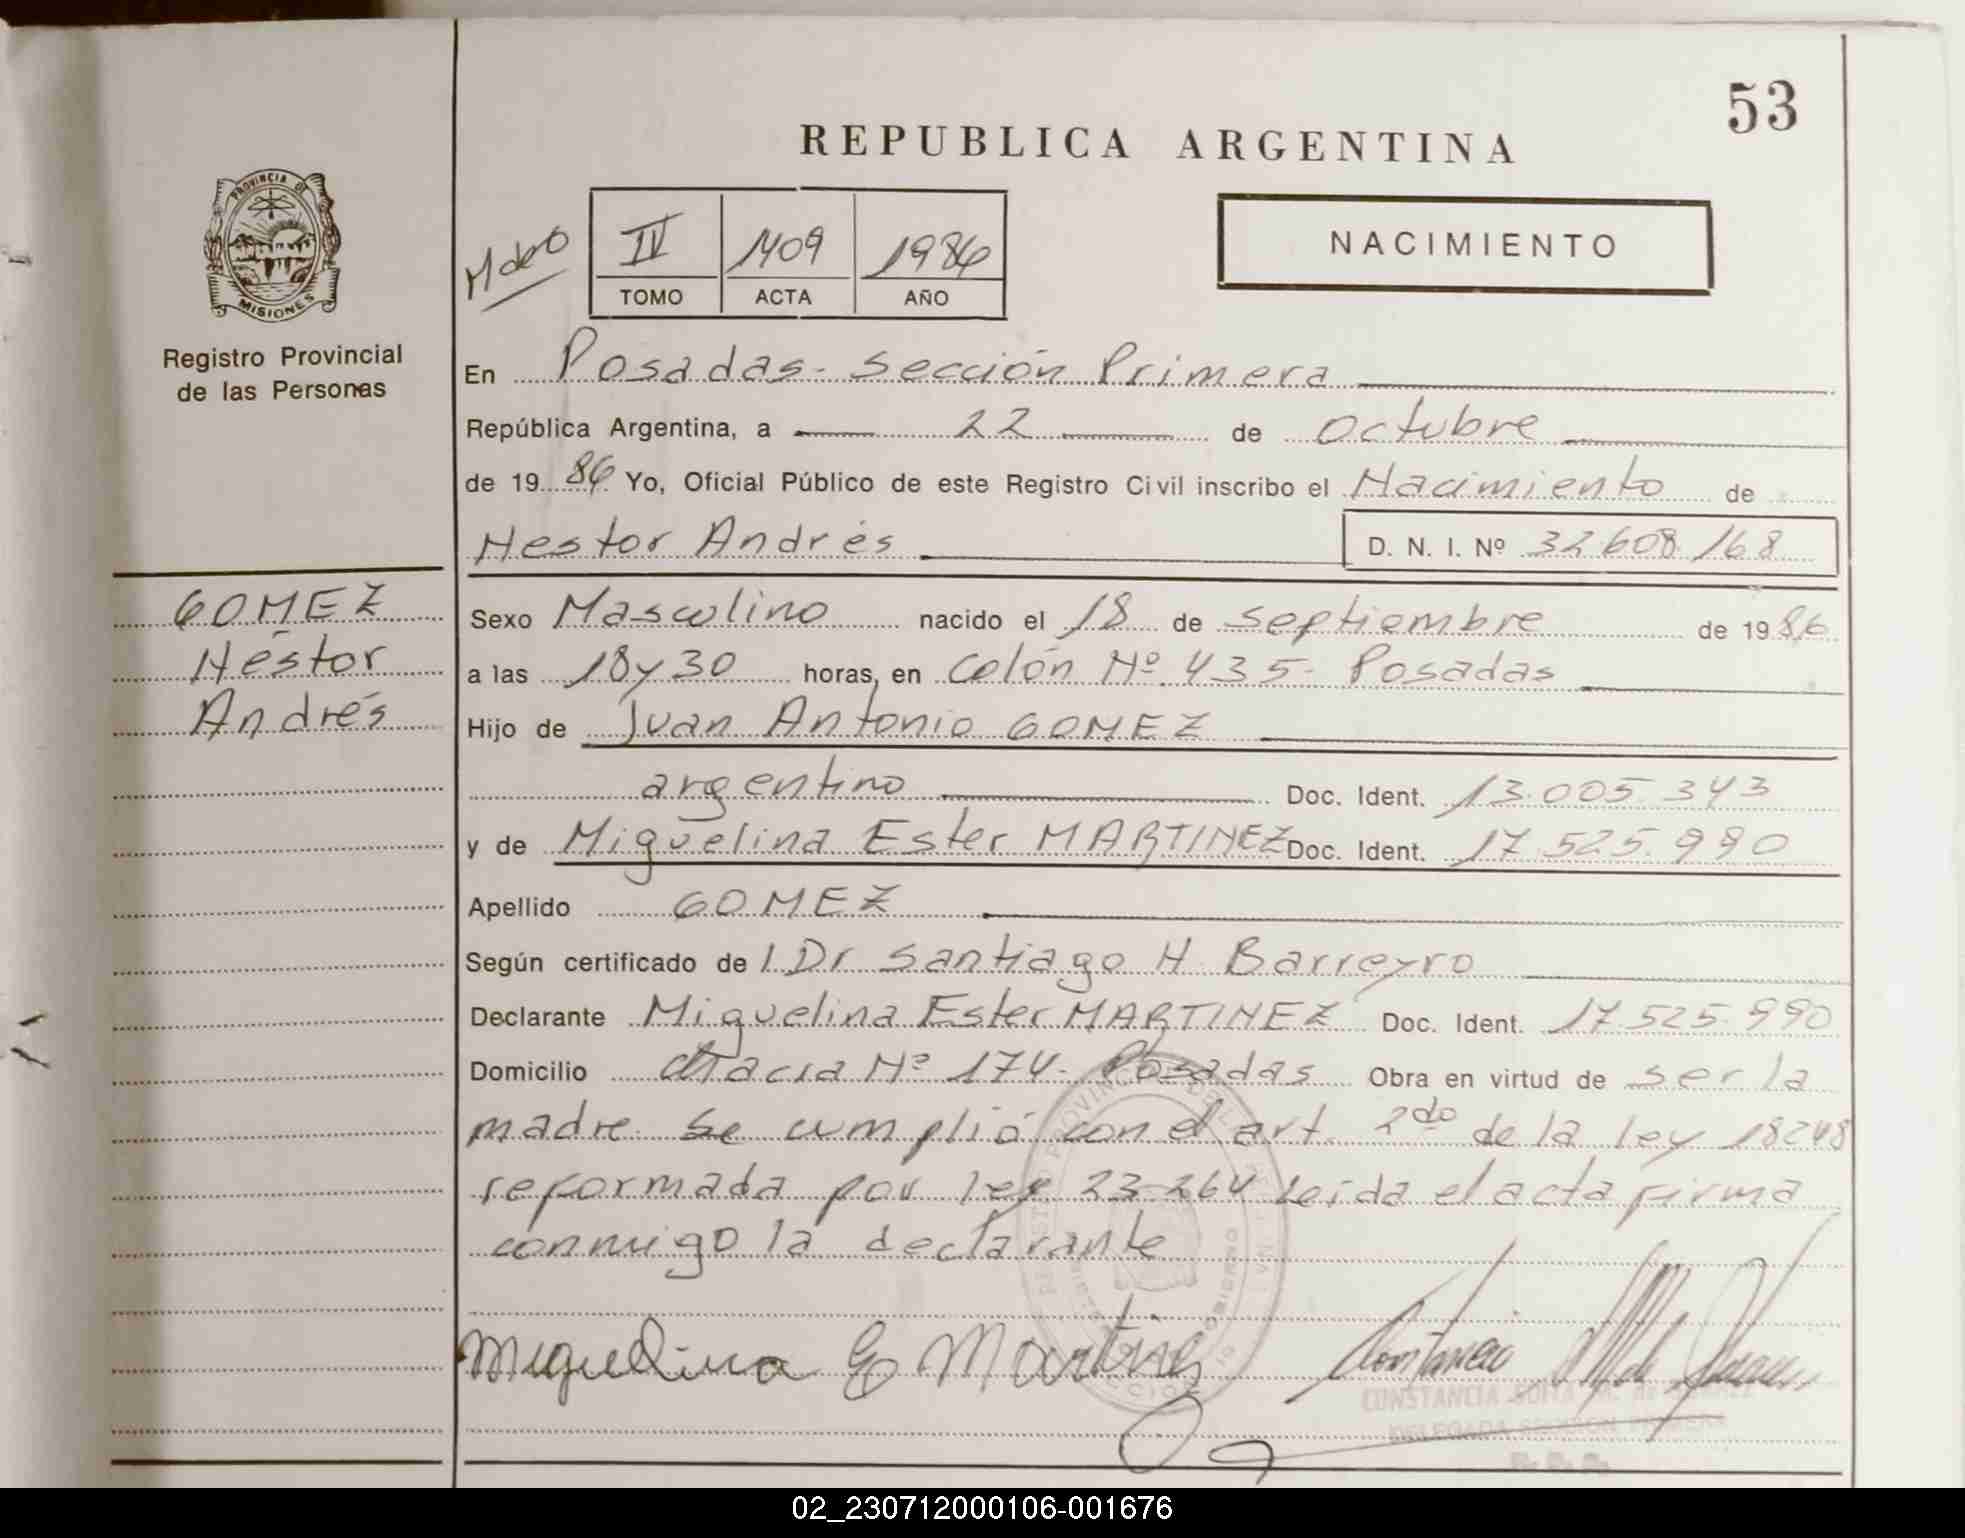 53
REPUBLICA ARGENTINA
PROVINCIA DE
MISIONES
Registro Provincial
de las Personas
IV 1409 1986
TOMO ACTA AÑO
NACIMIENTO
En Posadas - Sección Primera
República Argentina, a 22 de Octubre
de 1986 Yo, Oficial Público de este Registro Civil inscribo el Nacimiento de
Nestor Andrés D. N. I. Nº 32.608.168
GOMEZ
Néstor
Andrés
Sexo Masculino nacido el 18 de septiembre de 1986
a las 18 y 30 horas, en Colón Nº 435 - Posadas
Hijo de Juan Antonio GOMEZ
argentino Doc. Ident. 13.005.343
y de Miguelina Ester MARTINEZ Doc. Ident. 17.525.990
Apellido GOMEZ
Según certificado de l Dr Santiago H Barreyro
Declarante Miguelina Ester MARTINEZ Doc. Ident. 17.525.990
Domicilio Nº 174 - Posadas Obra en virtud de ser la
madre se cumplió con el art. 2do de la ley 18248
reformada por ley 23.264 Leída el acta firma
conmigo la declarante
Miguelina E Martinez
CONSTANCIA
DELEGADA SECCION PRIMERA
02_230712000106-001676